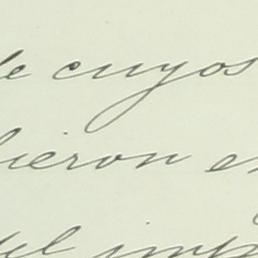 de cuyos
ieron e
del imp